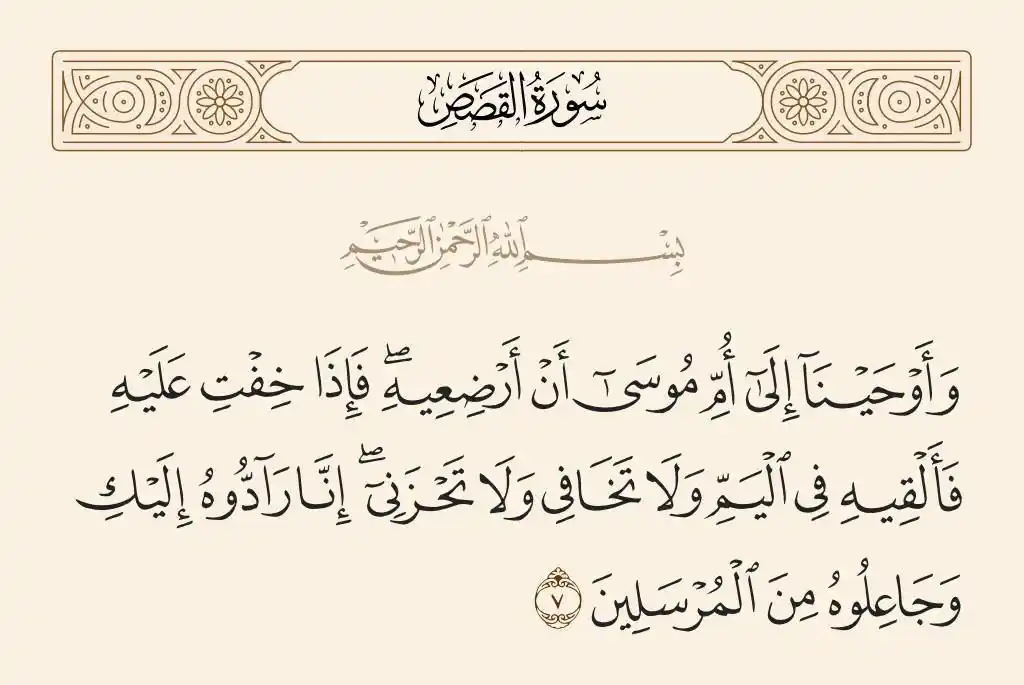 سُورَةُ القَصَصِ
بِسْمِ ٱللَّهِ ٱلرَّحْمَٰنِ ٱلرَّحِيمِ
وَأَوْحَيْنَآ إِلَىٰٓ أُمِّ مُوسَىٰٓ أَنْ أَرْضِعِيهِ ۖ فَإِذَا خِفْتِ عَلَيْهِ
فَأَلْقِيهِ فِى ٱلْيَمِّ وَلَا تَخَافِى وَلَا تَحْزَنِىٓ ۖ إِنَّا رَآدُّوهُ إِلَيْكِ
وَجَاعِلُوهُ مِنَ ٱلْمُرْسَلِينَ ٧